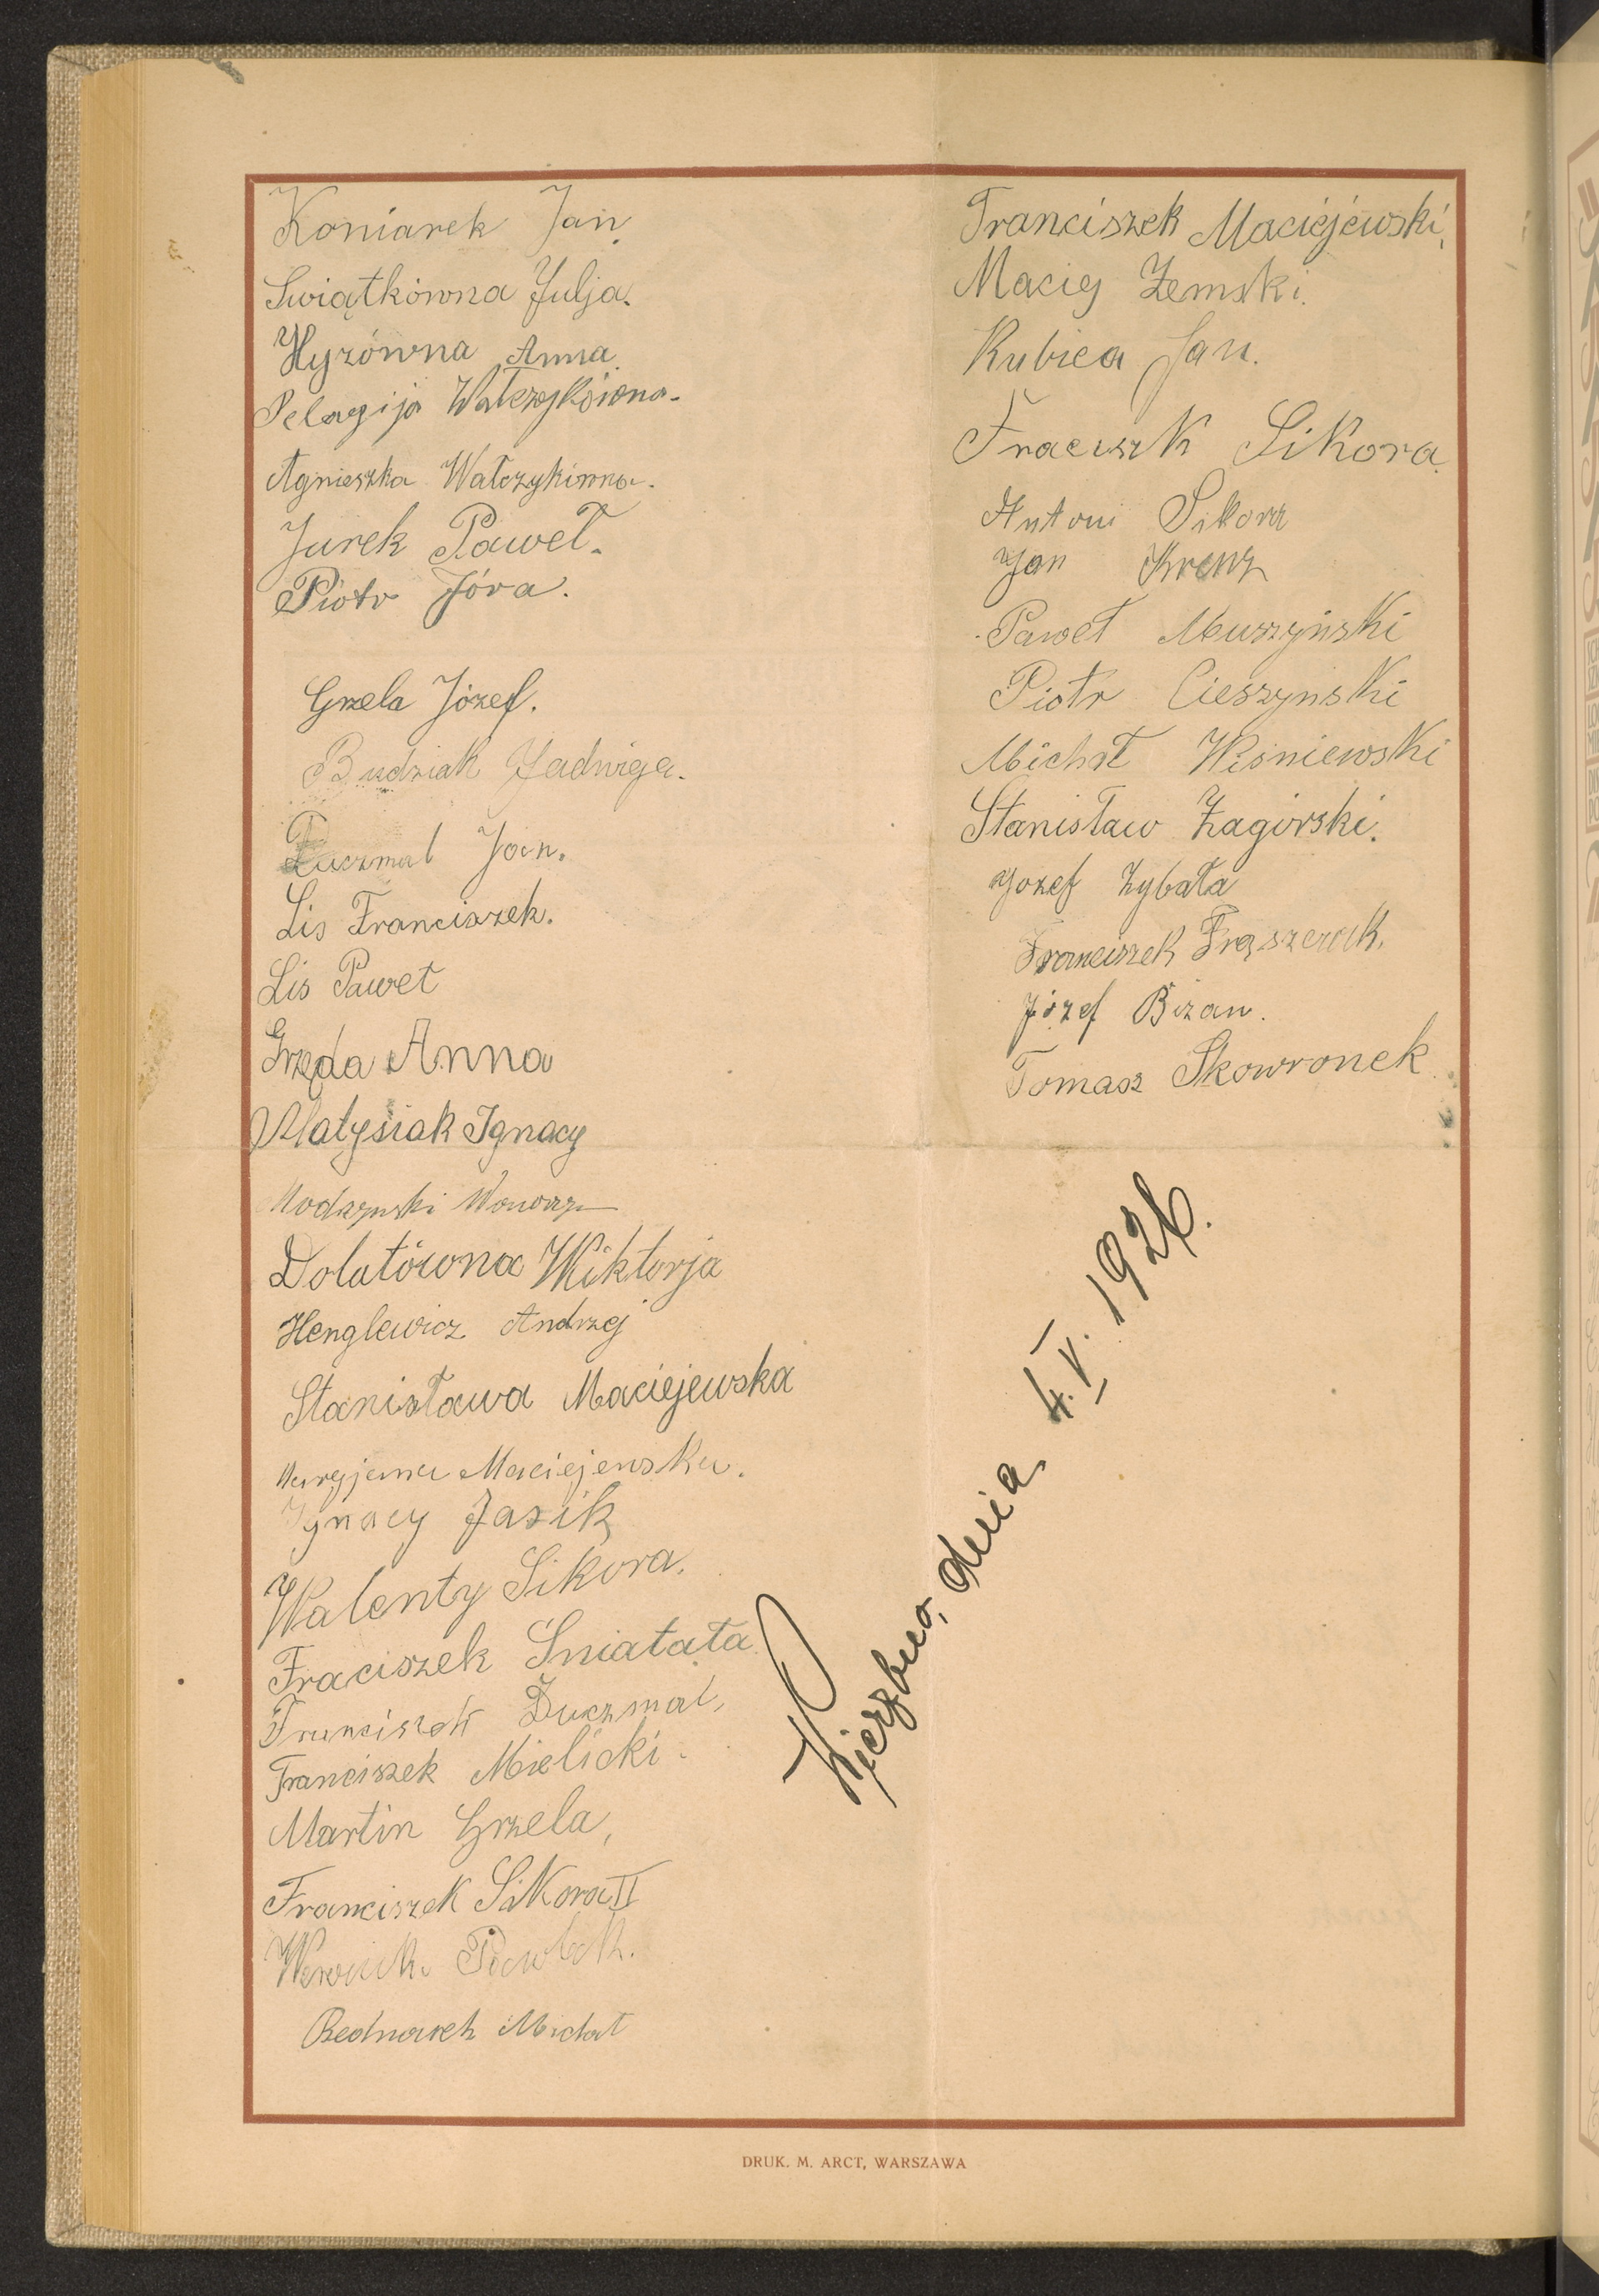 Koniarek Jan
Swiątkówna Julja.
Hyzówna Anna
Pelagija Wałczykówna.
Agnieszka Wałczykówna.
Jurek Paweł.
Piotr Jóra.
Grzela Józef.
Budziak Jadwiga.
Duczmal Jan.
Lis Franciszek.
Lis Paweł
Grzęda Anna
Matysiak Ignacy
Dolatówna Wiktorja
Henglewicz Andrzej
Stanisława Maciejewska
Maciejewska.
Ignacy Jasik
Walenty Sikora.
Fraciszek Sniatała
Franciszek Duczmal,
Franciszek Mielicki.
Martin Grzela,
Franciszek Sikora II
Bednarek Michał
Franciszek Maciéjéwski,
Maciej Zemski.
Kubica Jan.
Sikora
Antoni Sikora
Jan Krenz
Paweł Muszyński
Piotr Cieszynski
Michał Wisniewski
Stanisław Zagórski.
Jozef Zybała
Franciszek
Józef Bizan.
Tomasz Skowronek
Wierzbno, dnia 4. V. 1926.
DRUK. M. ARCT, WARSZAWA